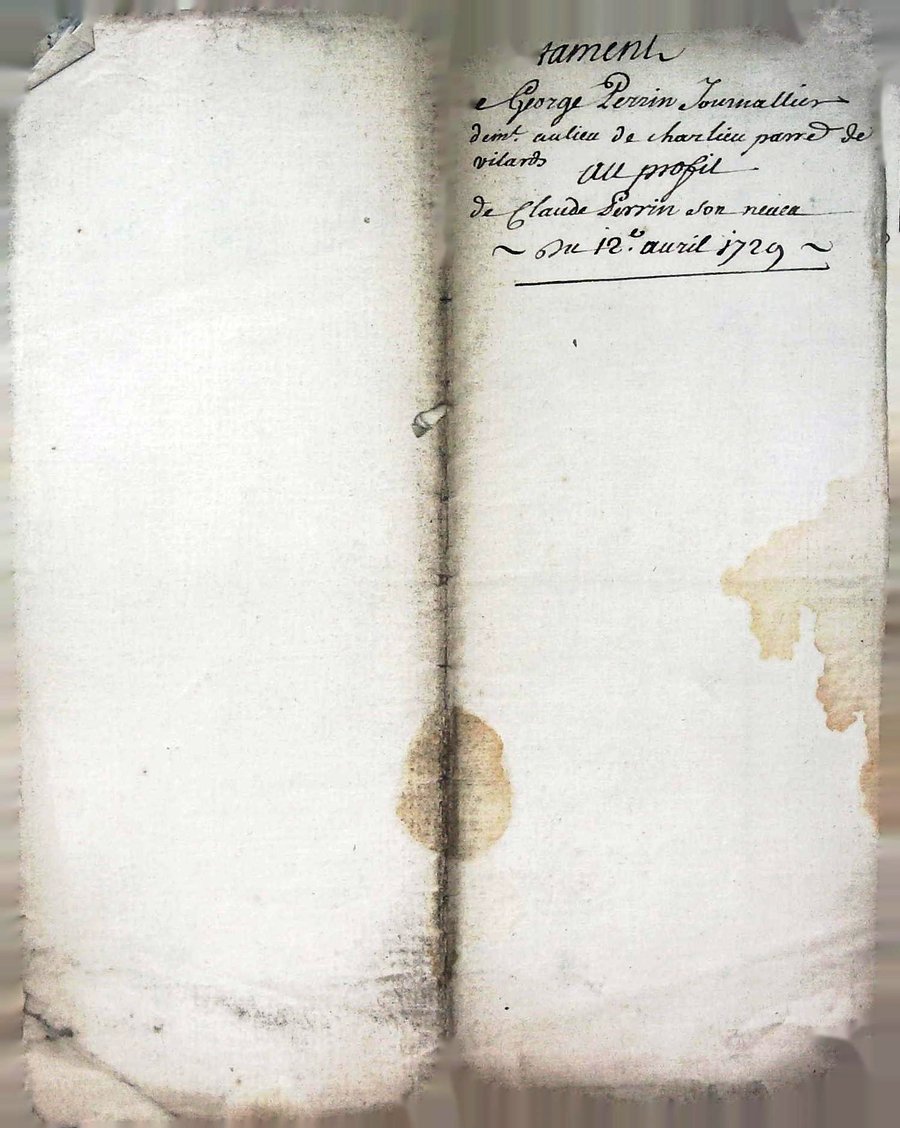 tament
e George Perrin Journallier
demt. aulieu de charlieu parred de
vilards
au profit
de Claude Perrin son neveu
~ Du 12.e auril 1729 ~